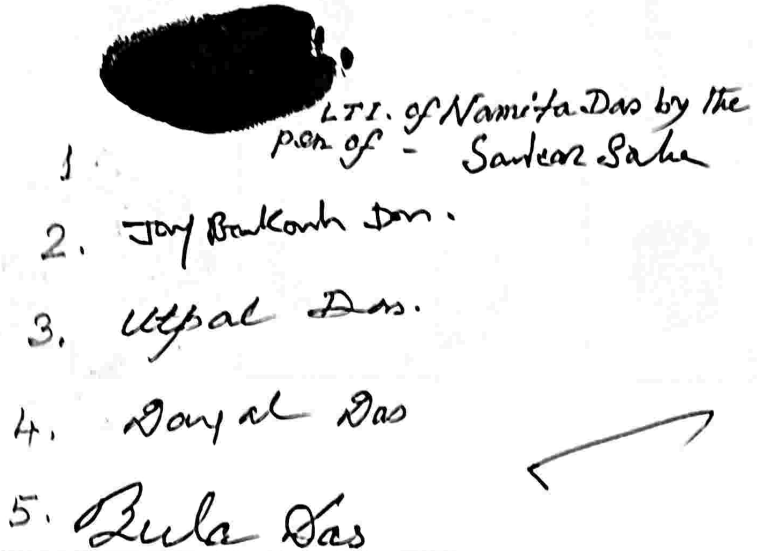 LTI. of Namita Das by the
pen of - Sankar Saha
1.
2. Joy Das.
3. Utpal Das.
4. Doyal Das
5. Bula Das